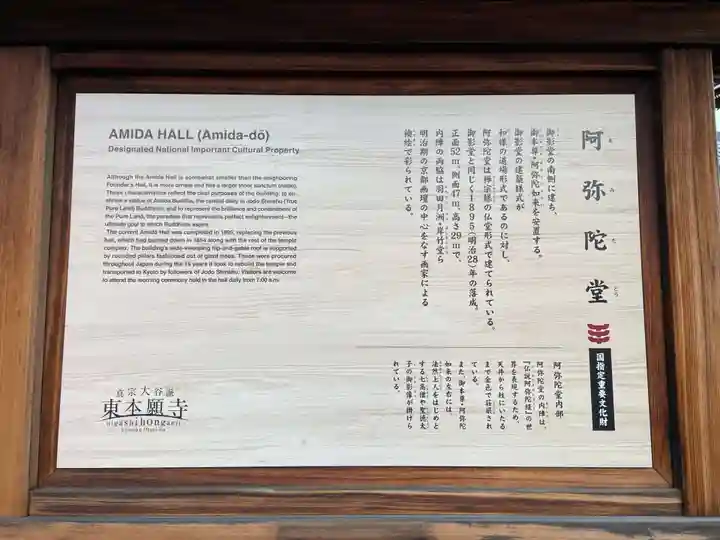 阿弥陀堂
あみだどう
国指定重要文化財
御影堂の南側に建ち、
御本尊・阿弥陀如来を安置する。
御影堂の建築様式が
和様の道場形式であるのに対し、
阿弥陀堂は禅宗様の仏堂形式で建てられている。
御影堂と同じく1895(明治28)年の落成。
正面52m、側面47m、高さ29mで、
内陣の両脇は羽田月洲・岸竹堂ら
明治期の京都画壇の中心をなす画家による
襖絵で彩られている。
阿弥陀堂内部
阿弥陀堂の内陣は、
『仏説阿弥陀経』の世
界を表現するため、
天井から柱にいたる
まで金色で荘厳され
ている。
また、御本尊・阿弥陀
如来の左右には、
法然上人をはじめと
する七高僧や聖徳太
子の御影像が掛けら
れている。
AMIDA HALL (Amida-dō)
Designated National Important Cultural Property
Although the Amida Hall is somewhat smaller than the neighboring
Founder's Hall, it is more ornate and has a larger inner sanctum (naijin).
These characteristics reflect the dual purposes of the building: to en-
shrine a statue of Amida Buddha, the central deity in Jodo Shinshu (True
Pure Land) Buddhism; and to represent the brilliance and contentment of
the Pure Land, the paradise that represents perfect enlightenment—the
ultimate goal to which Buddhists aspire.
The current Amida Hall was completed in 1895, replacing the previous
hall, which had burned down in 1864 along with the rest of the temple
complex. The building's wide-sweeping hip-and-gable roof is supported
by rounded pillars fashioned out of great trees. These were procured
throughout Japan during the 15 years it took to rebuild the temple and
transported to Kyoto by followers of Jodo Shinshu. Visitors are welcome
to attend the morning ceremony held in the hall daily from 7:00 a.m.
真宗大谷派
東本願寺
higashihonganji